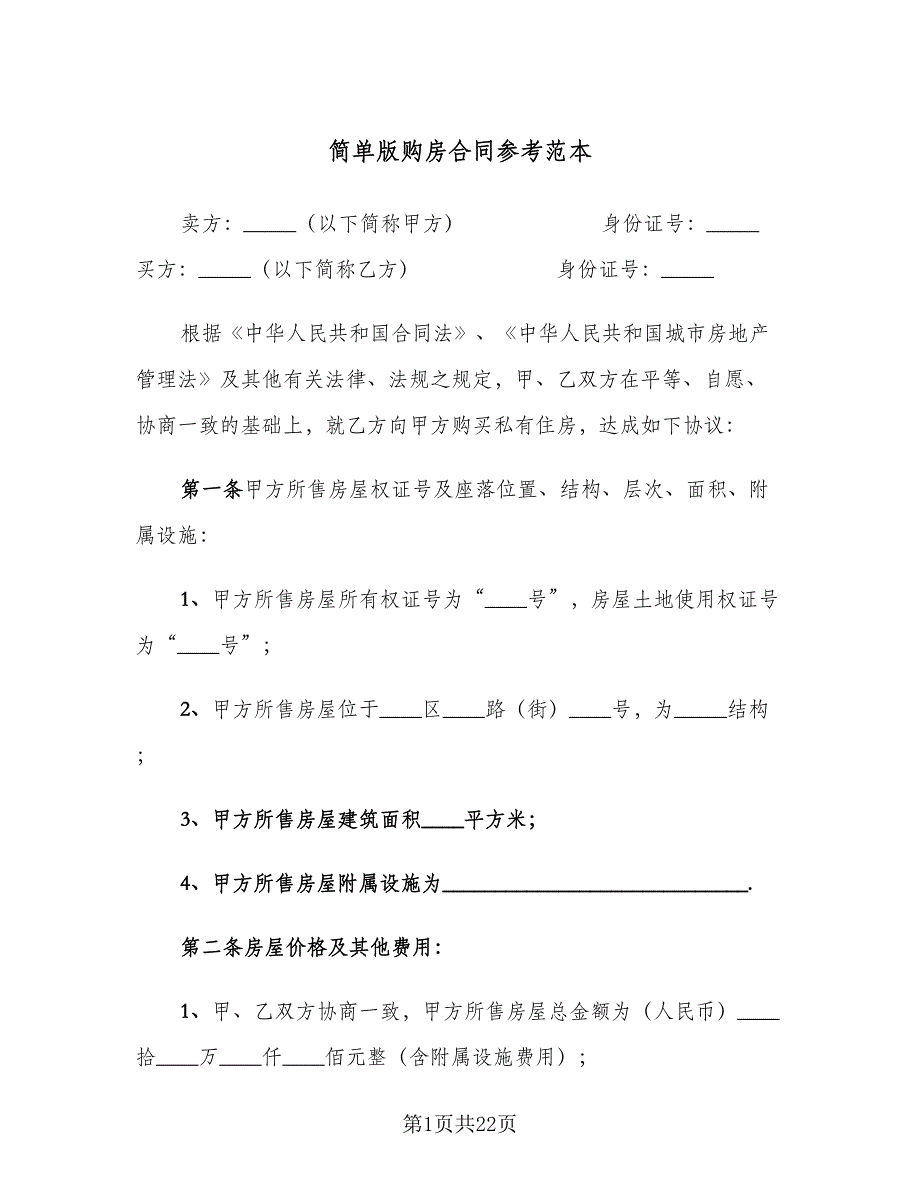 简单版购房合同参考范本
卖方：_____（以下简称甲方） 身份证号：_____
买方：_____（以下简称乙方） 身份证号：_____
根据《中华人民共和国合同法》、《中华人民共和国城市房地产
管理法》及其他有关法律、法规之规定，甲、乙双方在平等、自愿、
协商一致的基础上，就乙方向甲方购买私有住房，达成如下协议：
第一条甲方所售房屋权证号及座落位置、结构、层次、面积、附
属设施：
1、甲方所售房屋所有权证号为“____号”，房屋土地使用权证号
为“____号”；
2、甲方所售房屋位于____区____路（街）____号，为_____结构
；
3、甲方所售房屋建筑面积____平方米；
4、甲方所售房屋附属设施为_____________________________.
第二条房屋价格及其他费用：
1、甲、乙双方协商一致，甲方所售房屋总金额为（人民币）____
拾____万____仟____佰元整（含附属设施费用）；
第1页共22页